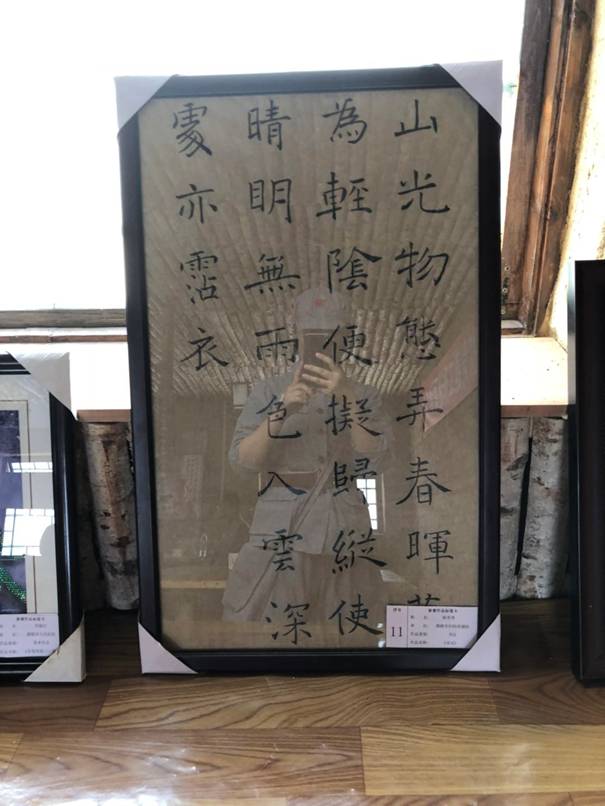 山光物態弄春暉莫
為輕陰便擬歸縱使
晴明無雨色入雲深
處亦霑衣
11